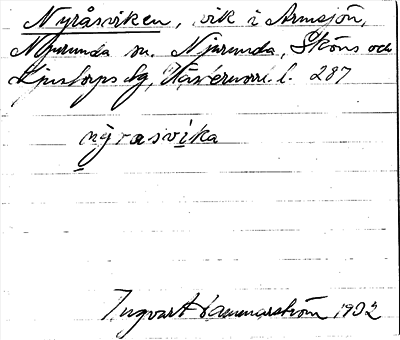 Nyråsviken, vik i Armsjön,
Njurunda sn. Njurunda, Sköns och
Ljustorps tg, Västernorrl. l. 287
nyrasvika
Ingvar Hammarström 1932